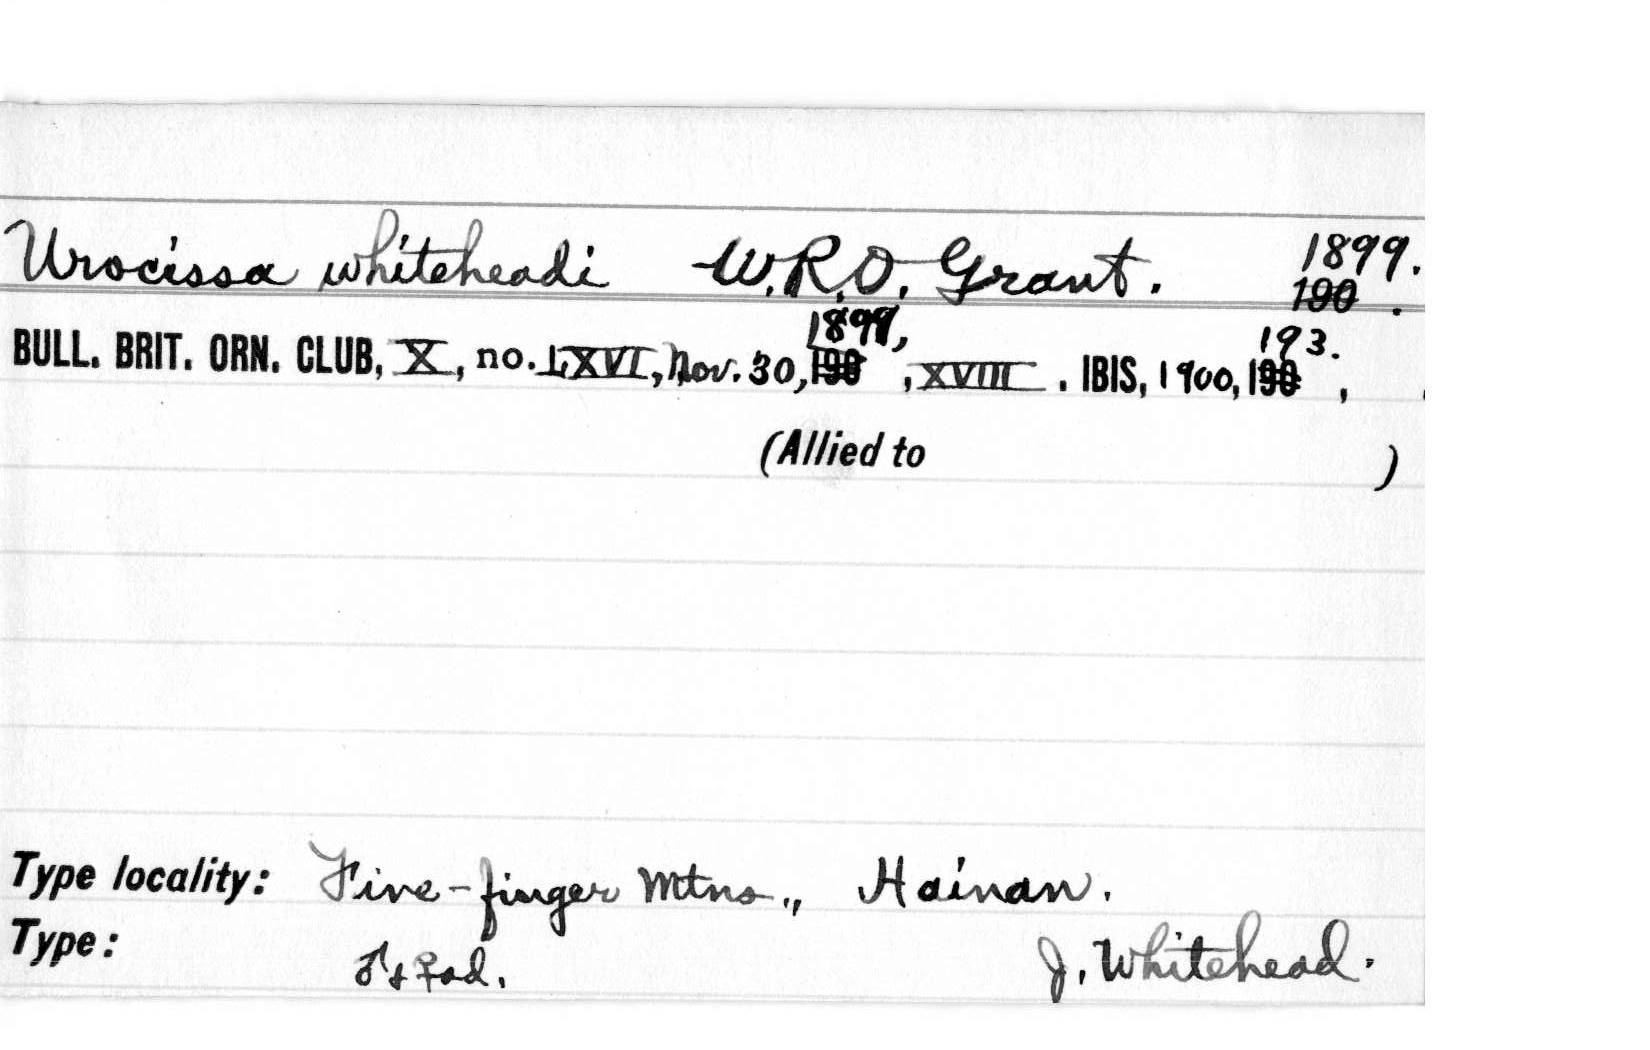 Urocissa whiteheadi W.R.O. Grant. 1899.
190 .
BULL. BRIT. ORN. CLUB, X, no. LXVI, Nov. 30, 190 1899, , XVIII . IBIS, 1900, 190 193. ,
(Allied to )
Type locality: Five-finger Mtns., Hainan.
Type: ♂ & ♀ ad. J. Whitehead.